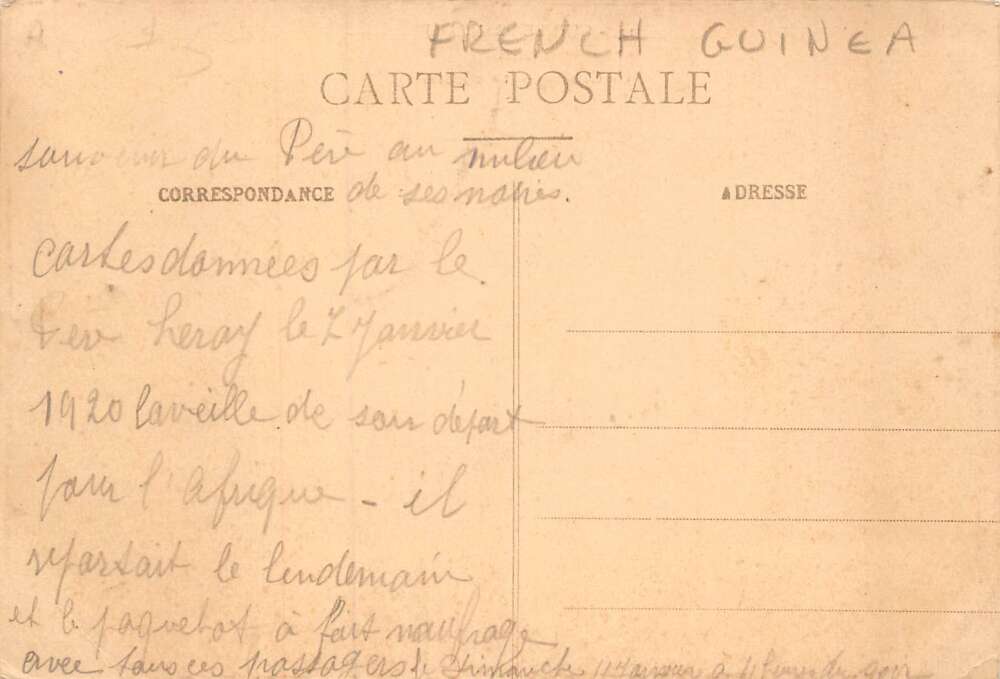 FRENCH GUINEA
CARTE POSTALE
souvenir du Père au milieu
de ses noires.
CORRESPONDANCE
ADRESSE
cartes données par le
Père Leray le 7 Janvier
1920 la veille de son départ
pour l'Afrique - il
repartait le lendemain
et le paquebot à fait naufrage
avec tous ces passagers le Dimanche 11 Janvier à 4 heures du